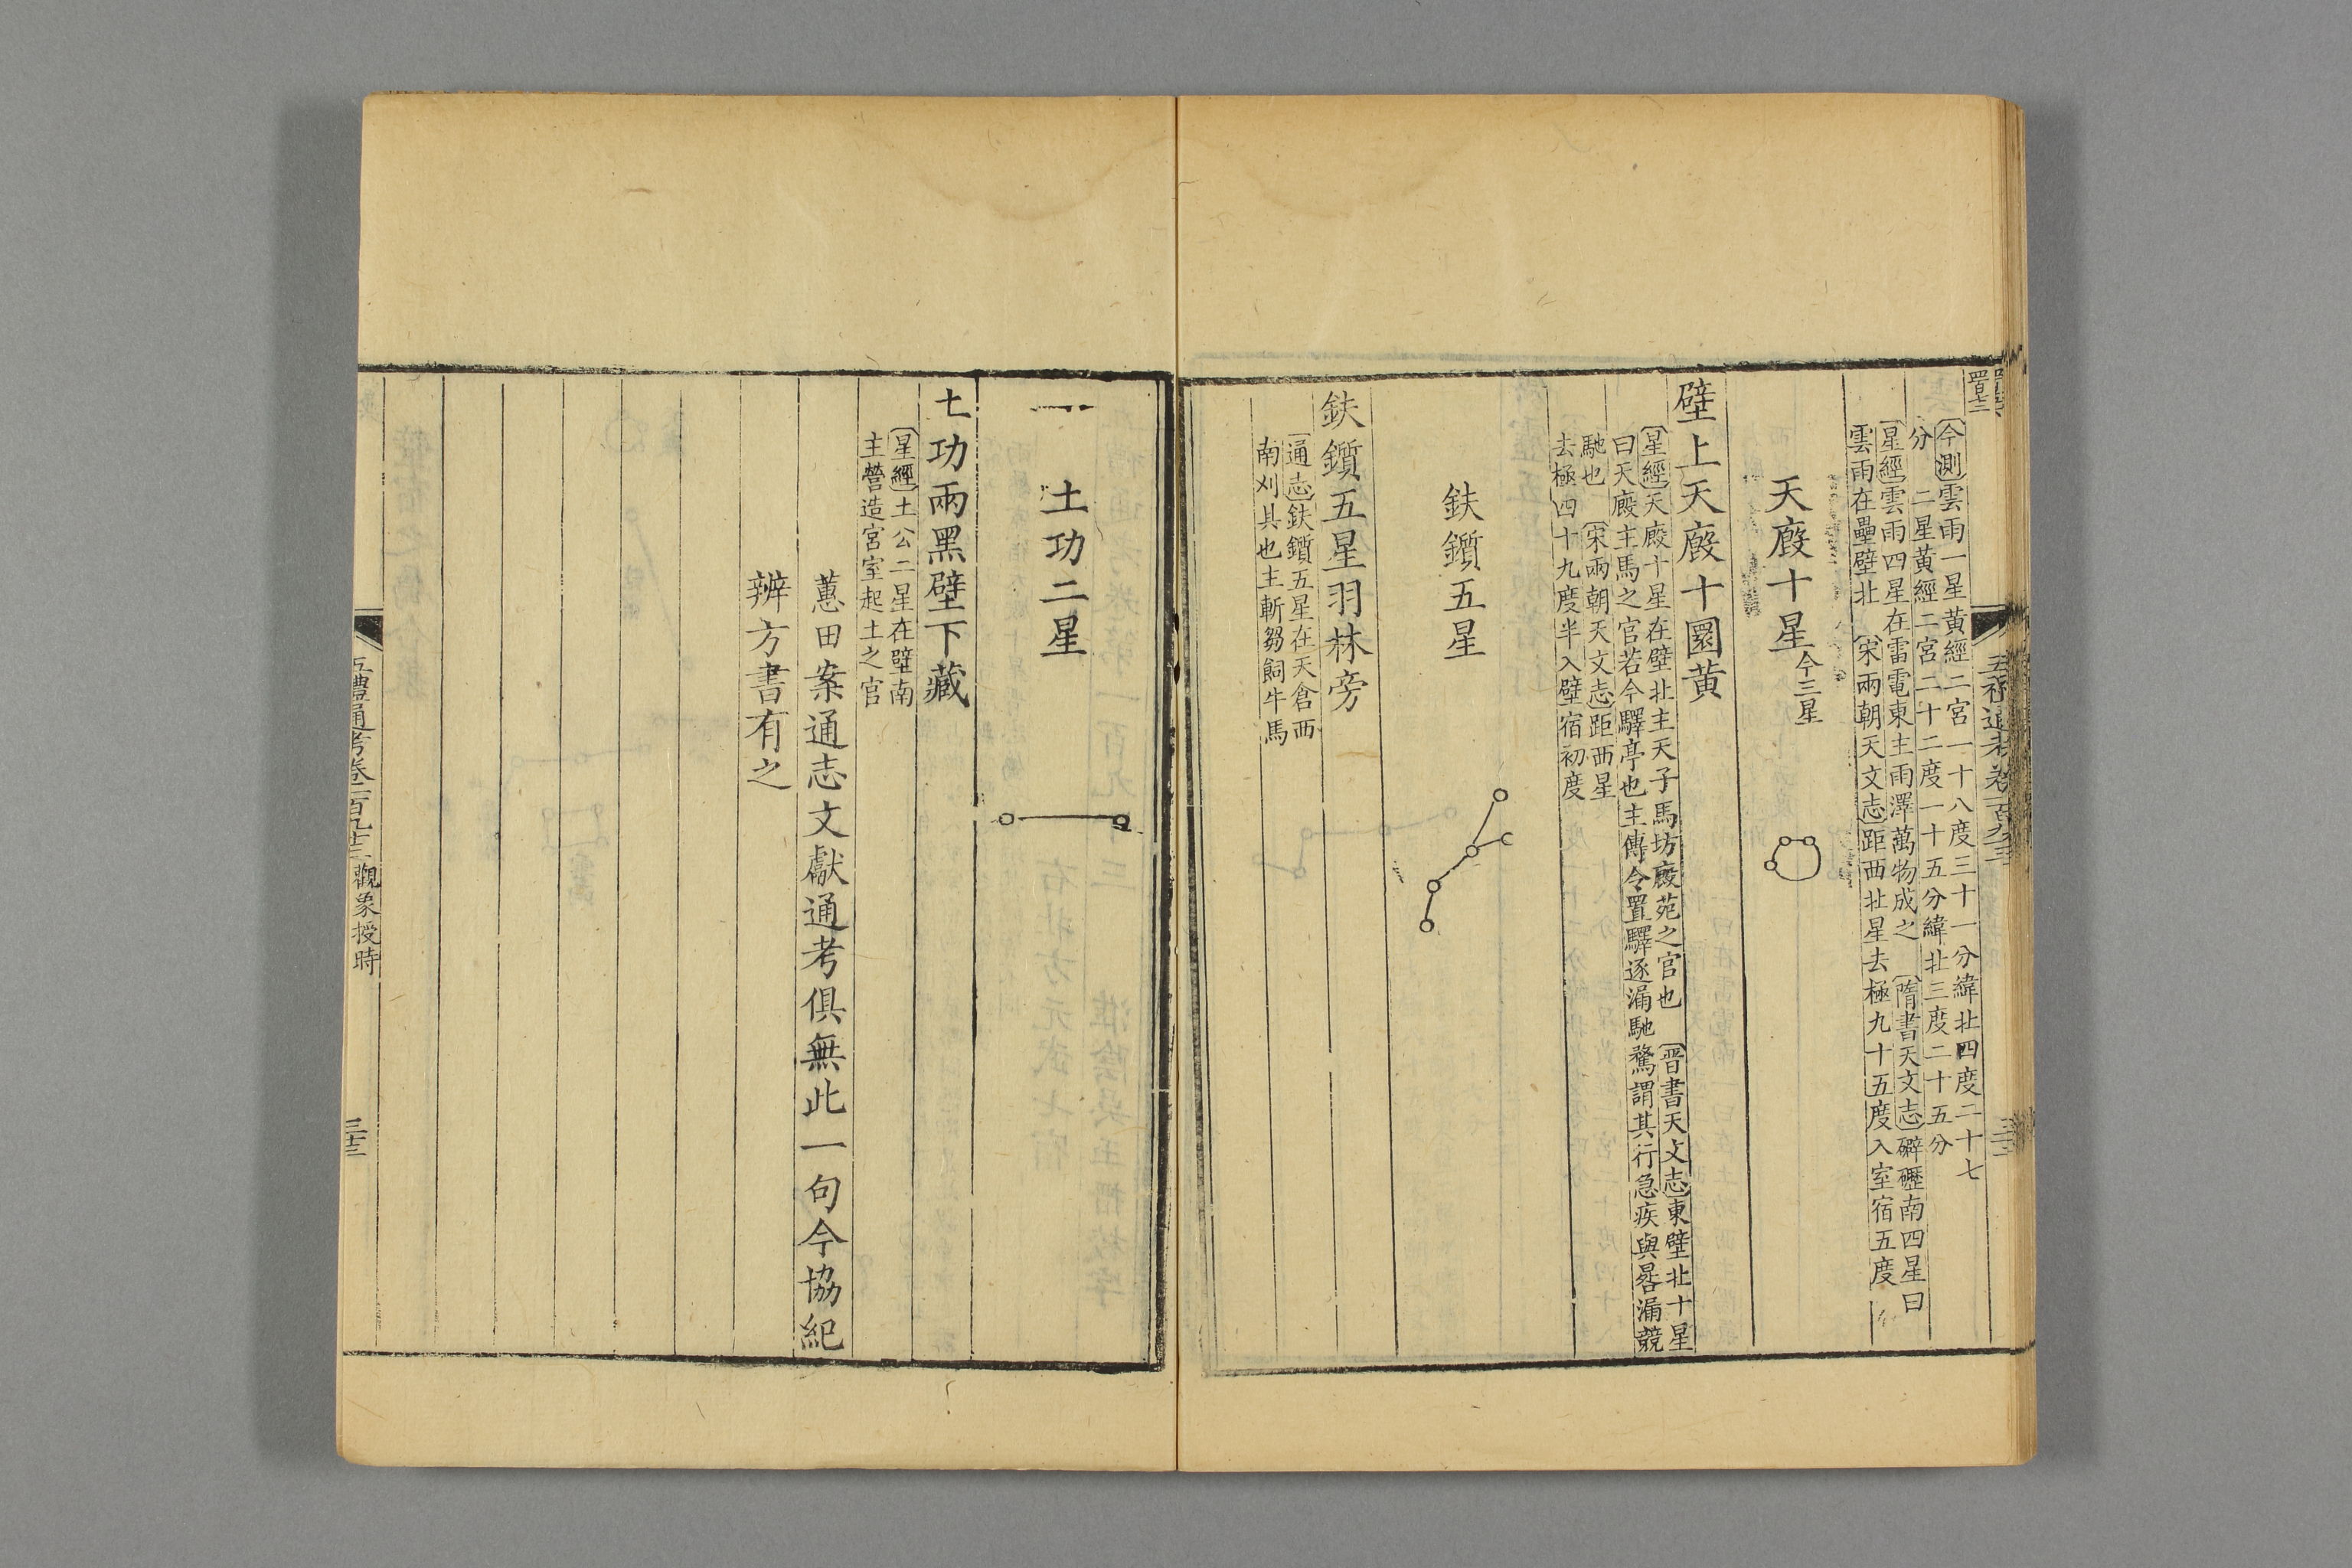 〔今測〕雲雨一星黄經二宮一十八度三十一分緯北四度二十七
分 二星黄經二宮二十二度一十五分緯北三度二十五分
〔星經〕雲雨四星在雷電東主雨澤萬物成之 〔隋書天文志〕礔礰南四星曰
雲雨在壘壁北 〔宋兩朝天文志〕距西北星去極九十五度入室宿五度
天廏十星今三星
壁上天廏十圜黄
〔星經〕天廏十星在壁北主天子馬坊廏苑之官也 〔晋書天文志〕東壁北十星
曰天廏主馬之官若今驛亭也主傳令置驛逐漏馳騖謂其行急疾與晷漏競
馳也 〔宋兩朝天文志〕距西星
去極四十九度半入壁宿初度
鈇鑕五星
鈇鑕五星羽林旁
〔通志〕鈇鑕五星在天倉西
南刈具也主斬芻飼牛馬
土功二星
土功兩黑壁下藏
〔星經〕土公二星在壁南
主營造宮室起土之官
蕙田案通志文獻通考俱無此一句今協紀
辨方書有之
五禮通考卷一百九十三 觀象授時
三十三